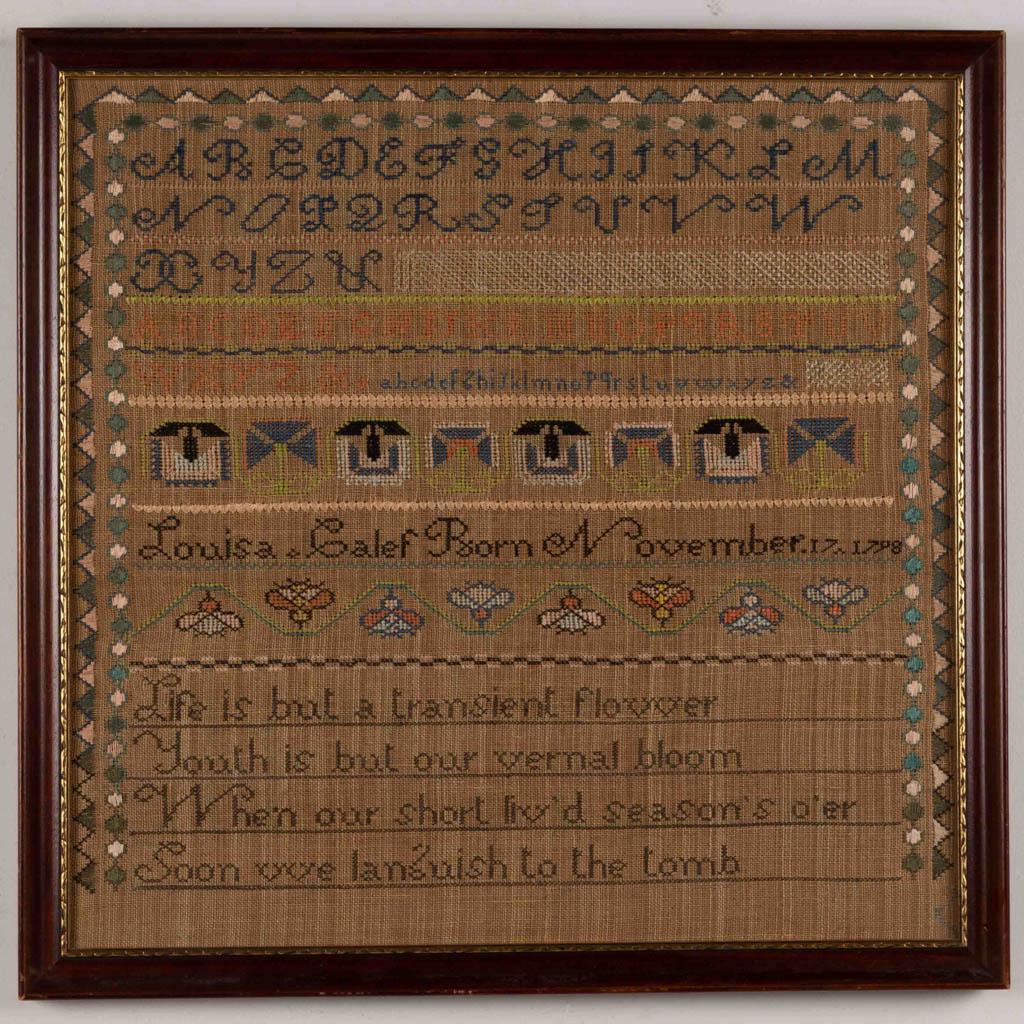 A B C D E F G H I J K L M
N O P Q R S T U V W
X Y Z &
A B C D E F G H I J K L M N O P Q R S T U V
W X Y Z & a b c d e f g h i j k l m n o p q r s t u v w x y z &
Louisa Calef Born November 17 1798
Life is but a transient flower
Youth is but our vernal bloom
When our short liv'd season's o'er
Soon we languish to the tomb